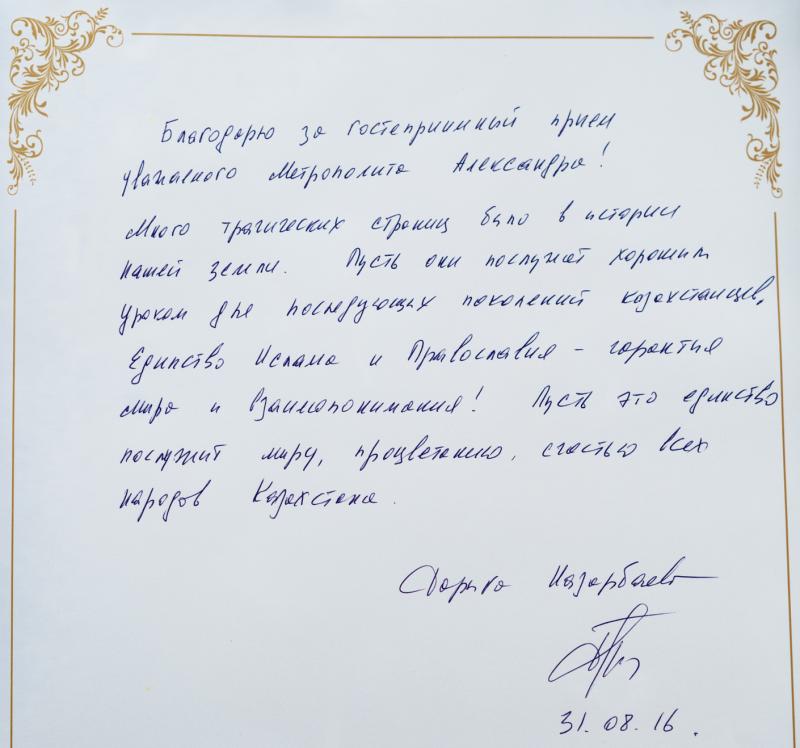 Благодарю за гостеприимный прием
уважаемого Метрополита Александра!
Много трагических страниц было в истории
нашей земли. Пусть они послужат хорошим
уроком для последующих поколений казахстанцев.
Единство Ислама и Православия - гарантия
мира и взаимопонимания! Пусть это единство
послужит миру, процветанию, счастью всех
народов Казахстана.
Дарига Назарбаева
31.08.16.